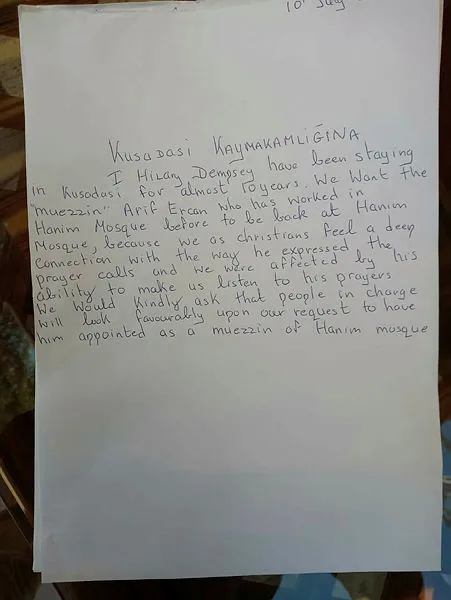 10 July
Kusadasi KAYMAKAMLIĞINA
I Hilary Dempsey have been staying
in Kusadasi for almost 10 years. We Want The
"muezzin" Arif Ercan who has worked in
Hanim Mosque before to be back at Hanim
Mosque, because we as christians feel a deep
connection with the way he expressed the
prayer calls and we were affected by his
ability to make us listen to his prayers
We would kindly ask that people in charge
will look favourably upon our request to have
him appointed as a muezzin of Hanim mosque